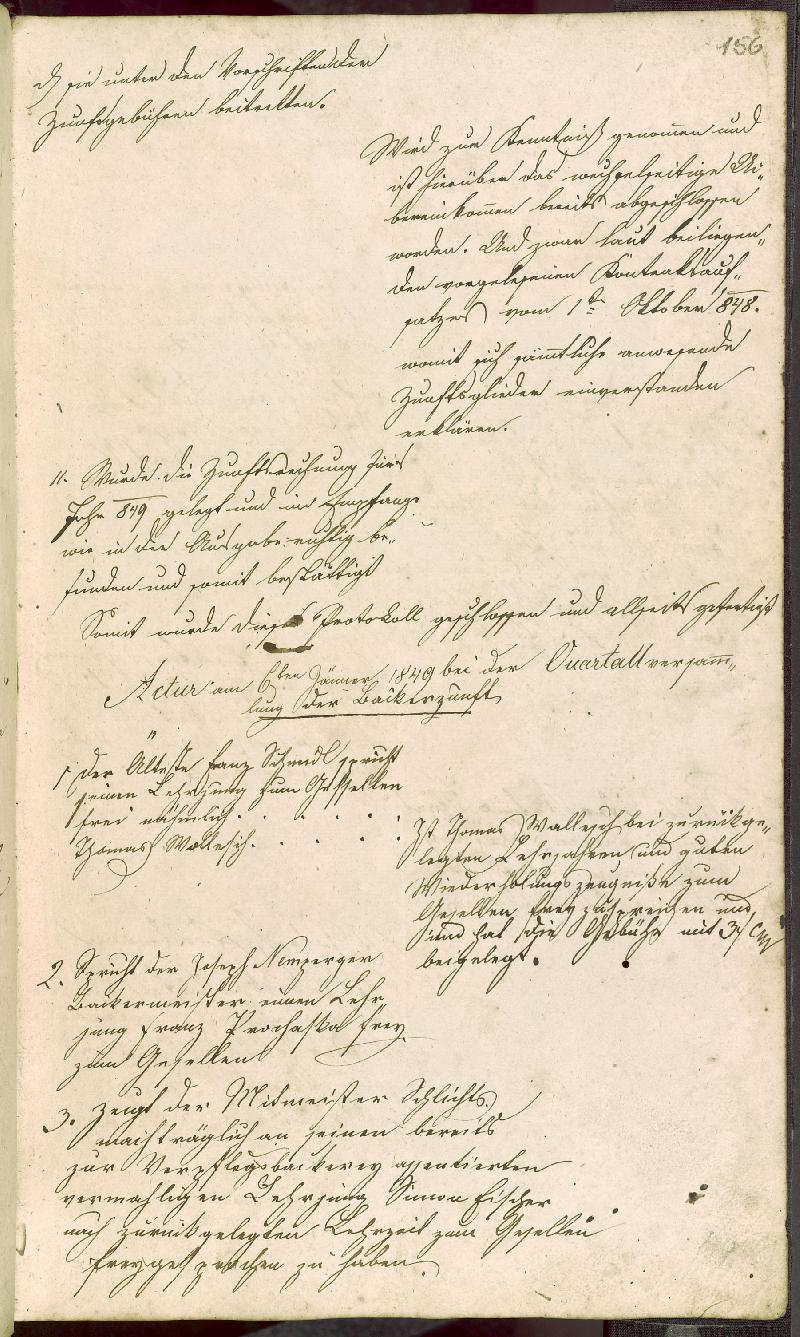 156
d sie unter den Vorschriften der
Zunftsgebühren beitretten.
Wird zur Kenntniß genommen und
ist hierüber das wechselseitige Ui-
bereinkommen bereits abgeschlossen
worden. Und zwar laut beiliegen„
den vorgelesenen Kontraktsauf„
satzes vom 1ten Oktober 848.
womit sich sämmtliche anwesende
Zunftsglieder einverstanden
erklären.
11. Wurde die Zunftsrechnung fürs
Jahr 849 gelegt und im Empfange
wie in der Ausgabe richtig be„
funden und somit bestättigt
Somit wurde dieses Protokoll geschlossen und allseits gefertigt
Actur am 6ten Jänner 1849 bei der Quartall versam„
lung der Bäckerzunft
1 Der Älteste Franz Schmdl spricht
seinen Lehrjung zum Gesellen
frei nähmlich
Thomas Wallesch.
Ist Thomas Wallesch bei zurückge„
legten Lehrjahren und guten
Wiederhohlungszeugniße zum
Gesellen frey zusprechen und
und hat die Gebühr mit 3f CM
beigelegt.
2. Spricht der Joseph Nemperger
Backermeister einen Lehr
jung Franz Prochaska frey
zum Gesellen
3. Zeugt der Mitmeister Schlichts
nachträglich an seinen bereits
zur Verpflegsbäckerey assentierten
vermahligen Lehrjung Simon Fischer
nach zurükgelegten Lehrzeit zum Gesellen
freygesprochen zu haben